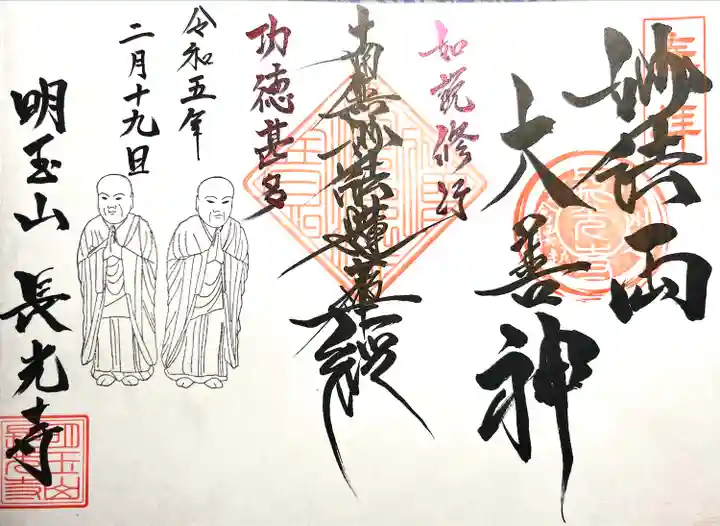 妙法両
大善神
如説修行
南無妙法蓮華経
功徳甚多
令和五年
二月十九日
明玉山 長光寺